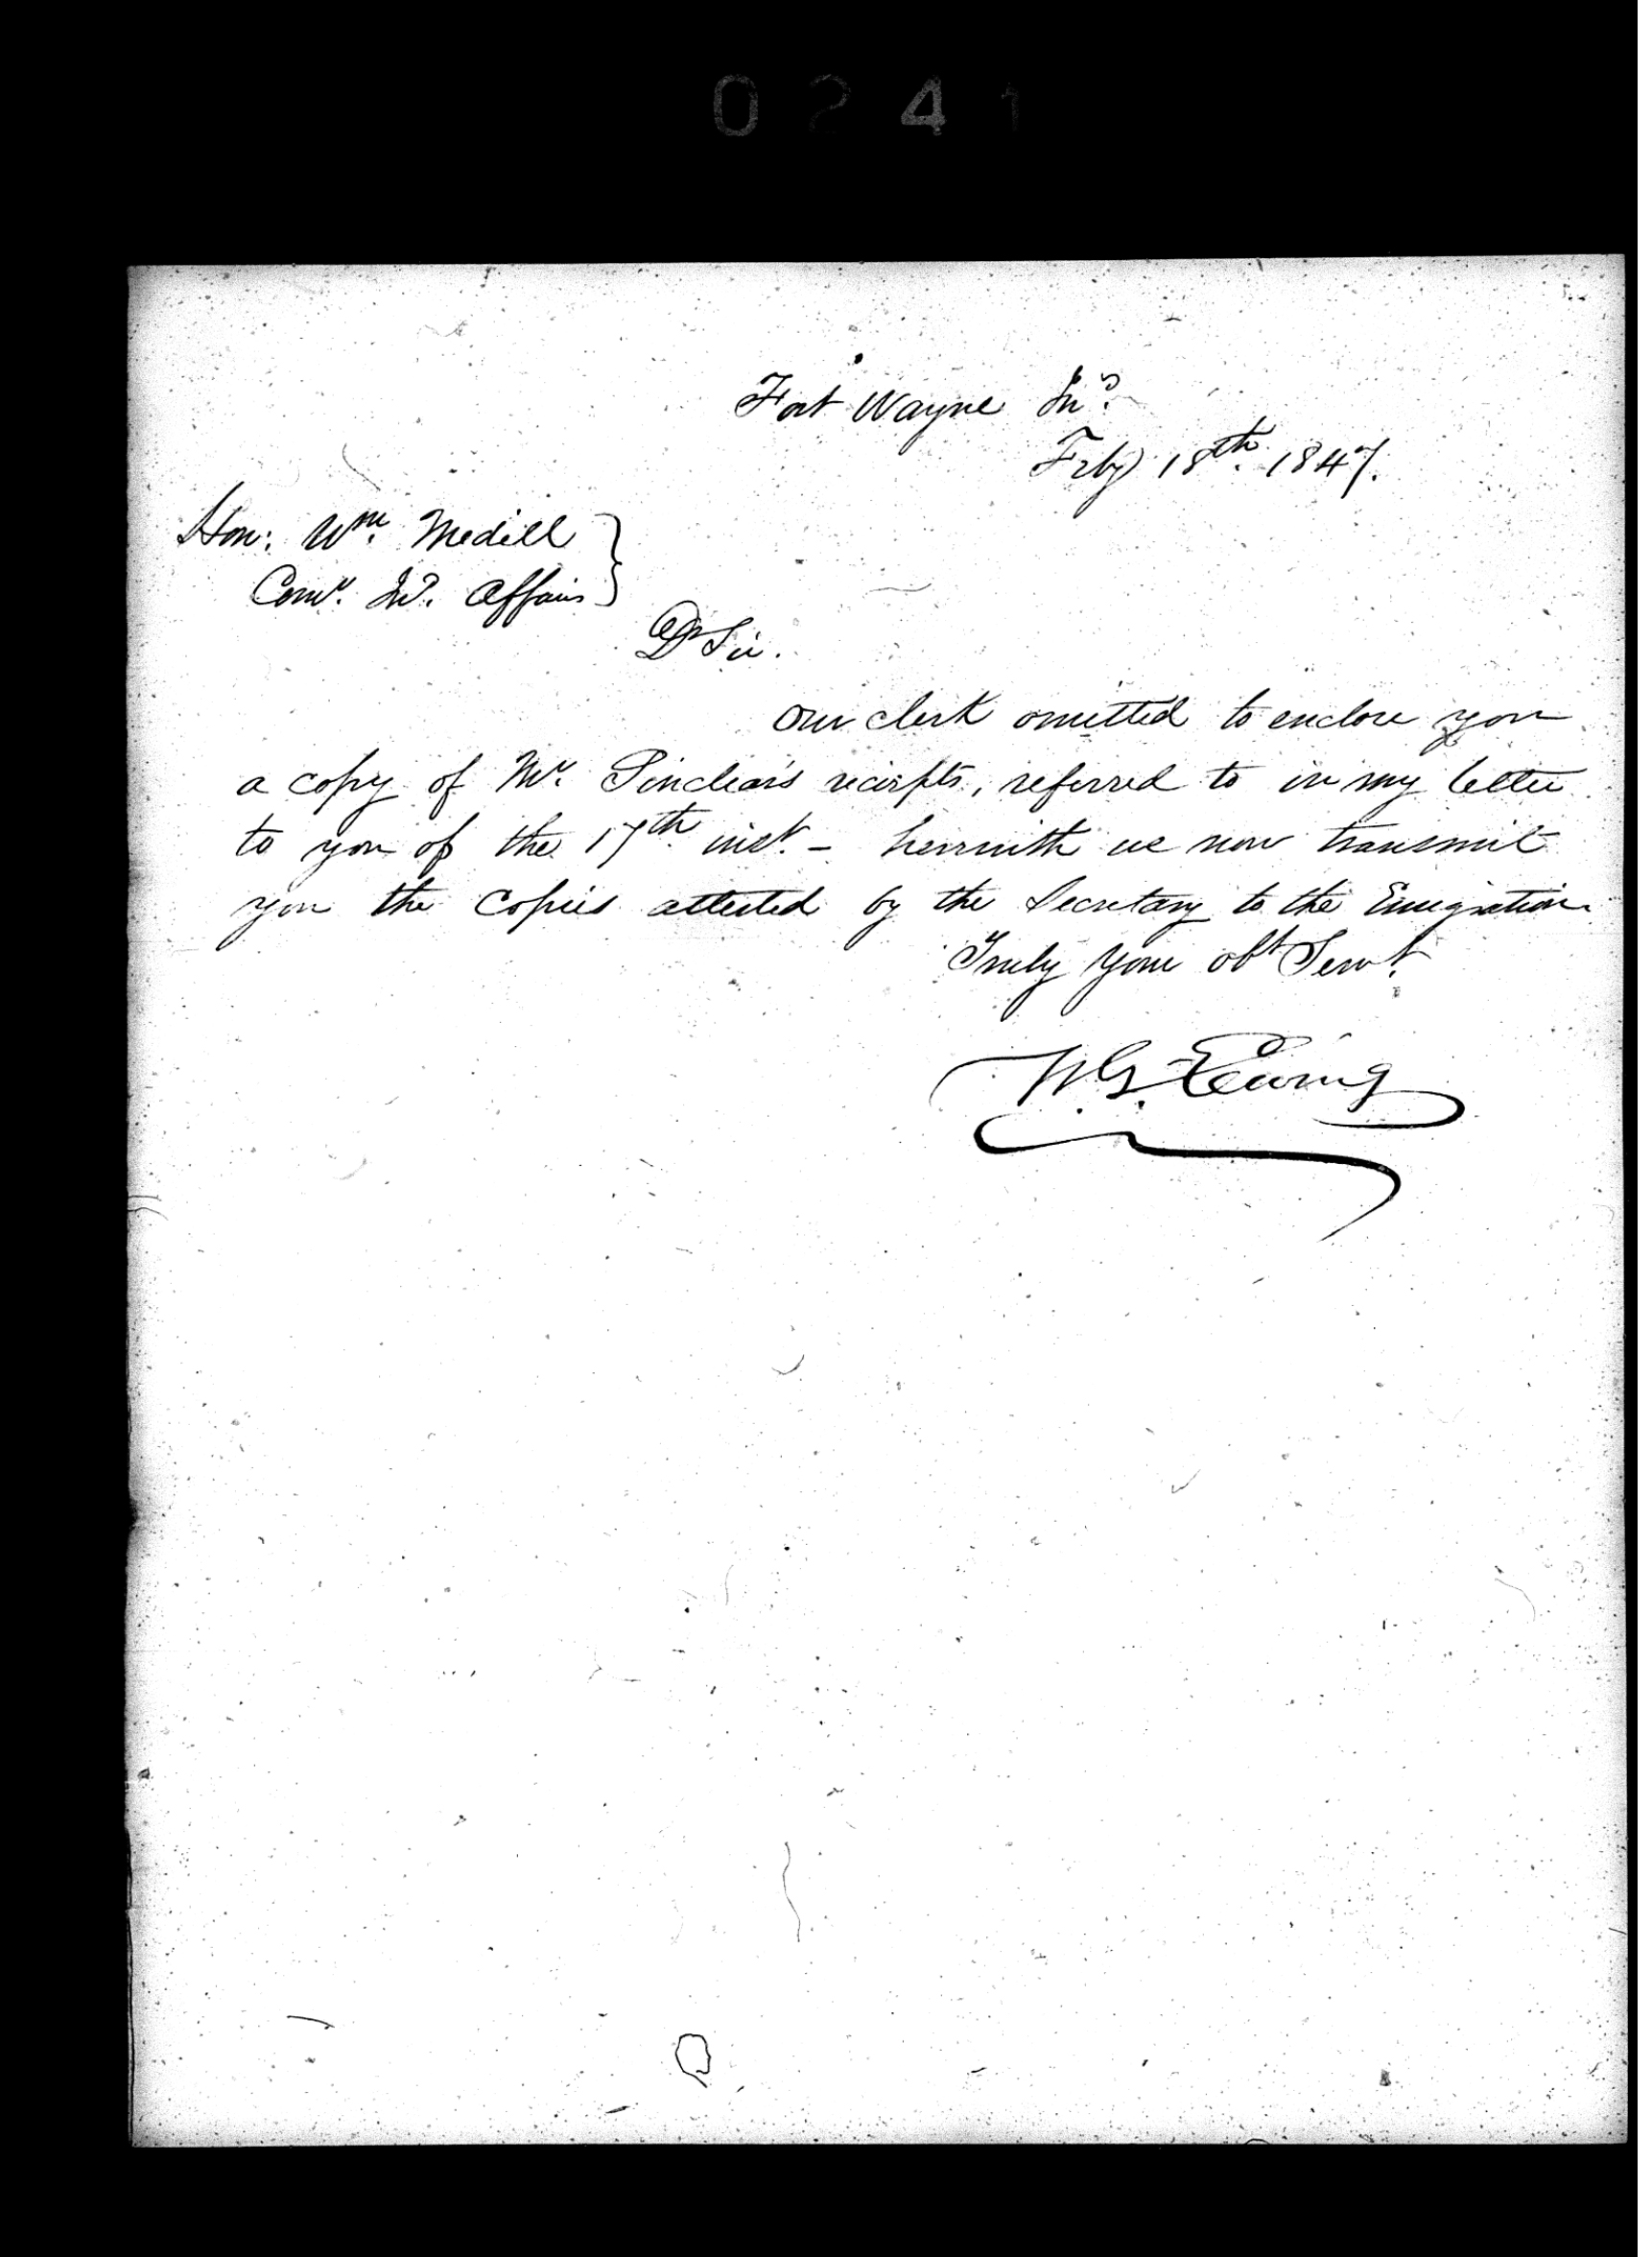 0241
Fort Wayne Ind.
Feby 18th. 1847.
Hon: Wm. Medill
Comr. Ind. Affairs
Dr Sir.
Our clerk omitted to enclose you
a copy of Mr. Sinclear's receipts, referred to in my letter
to you of the 17th inst. - herewith we now transmit
you the copies attested by the Secretary to the Emigration
Truly your obt Servt.
W. G. Ewing